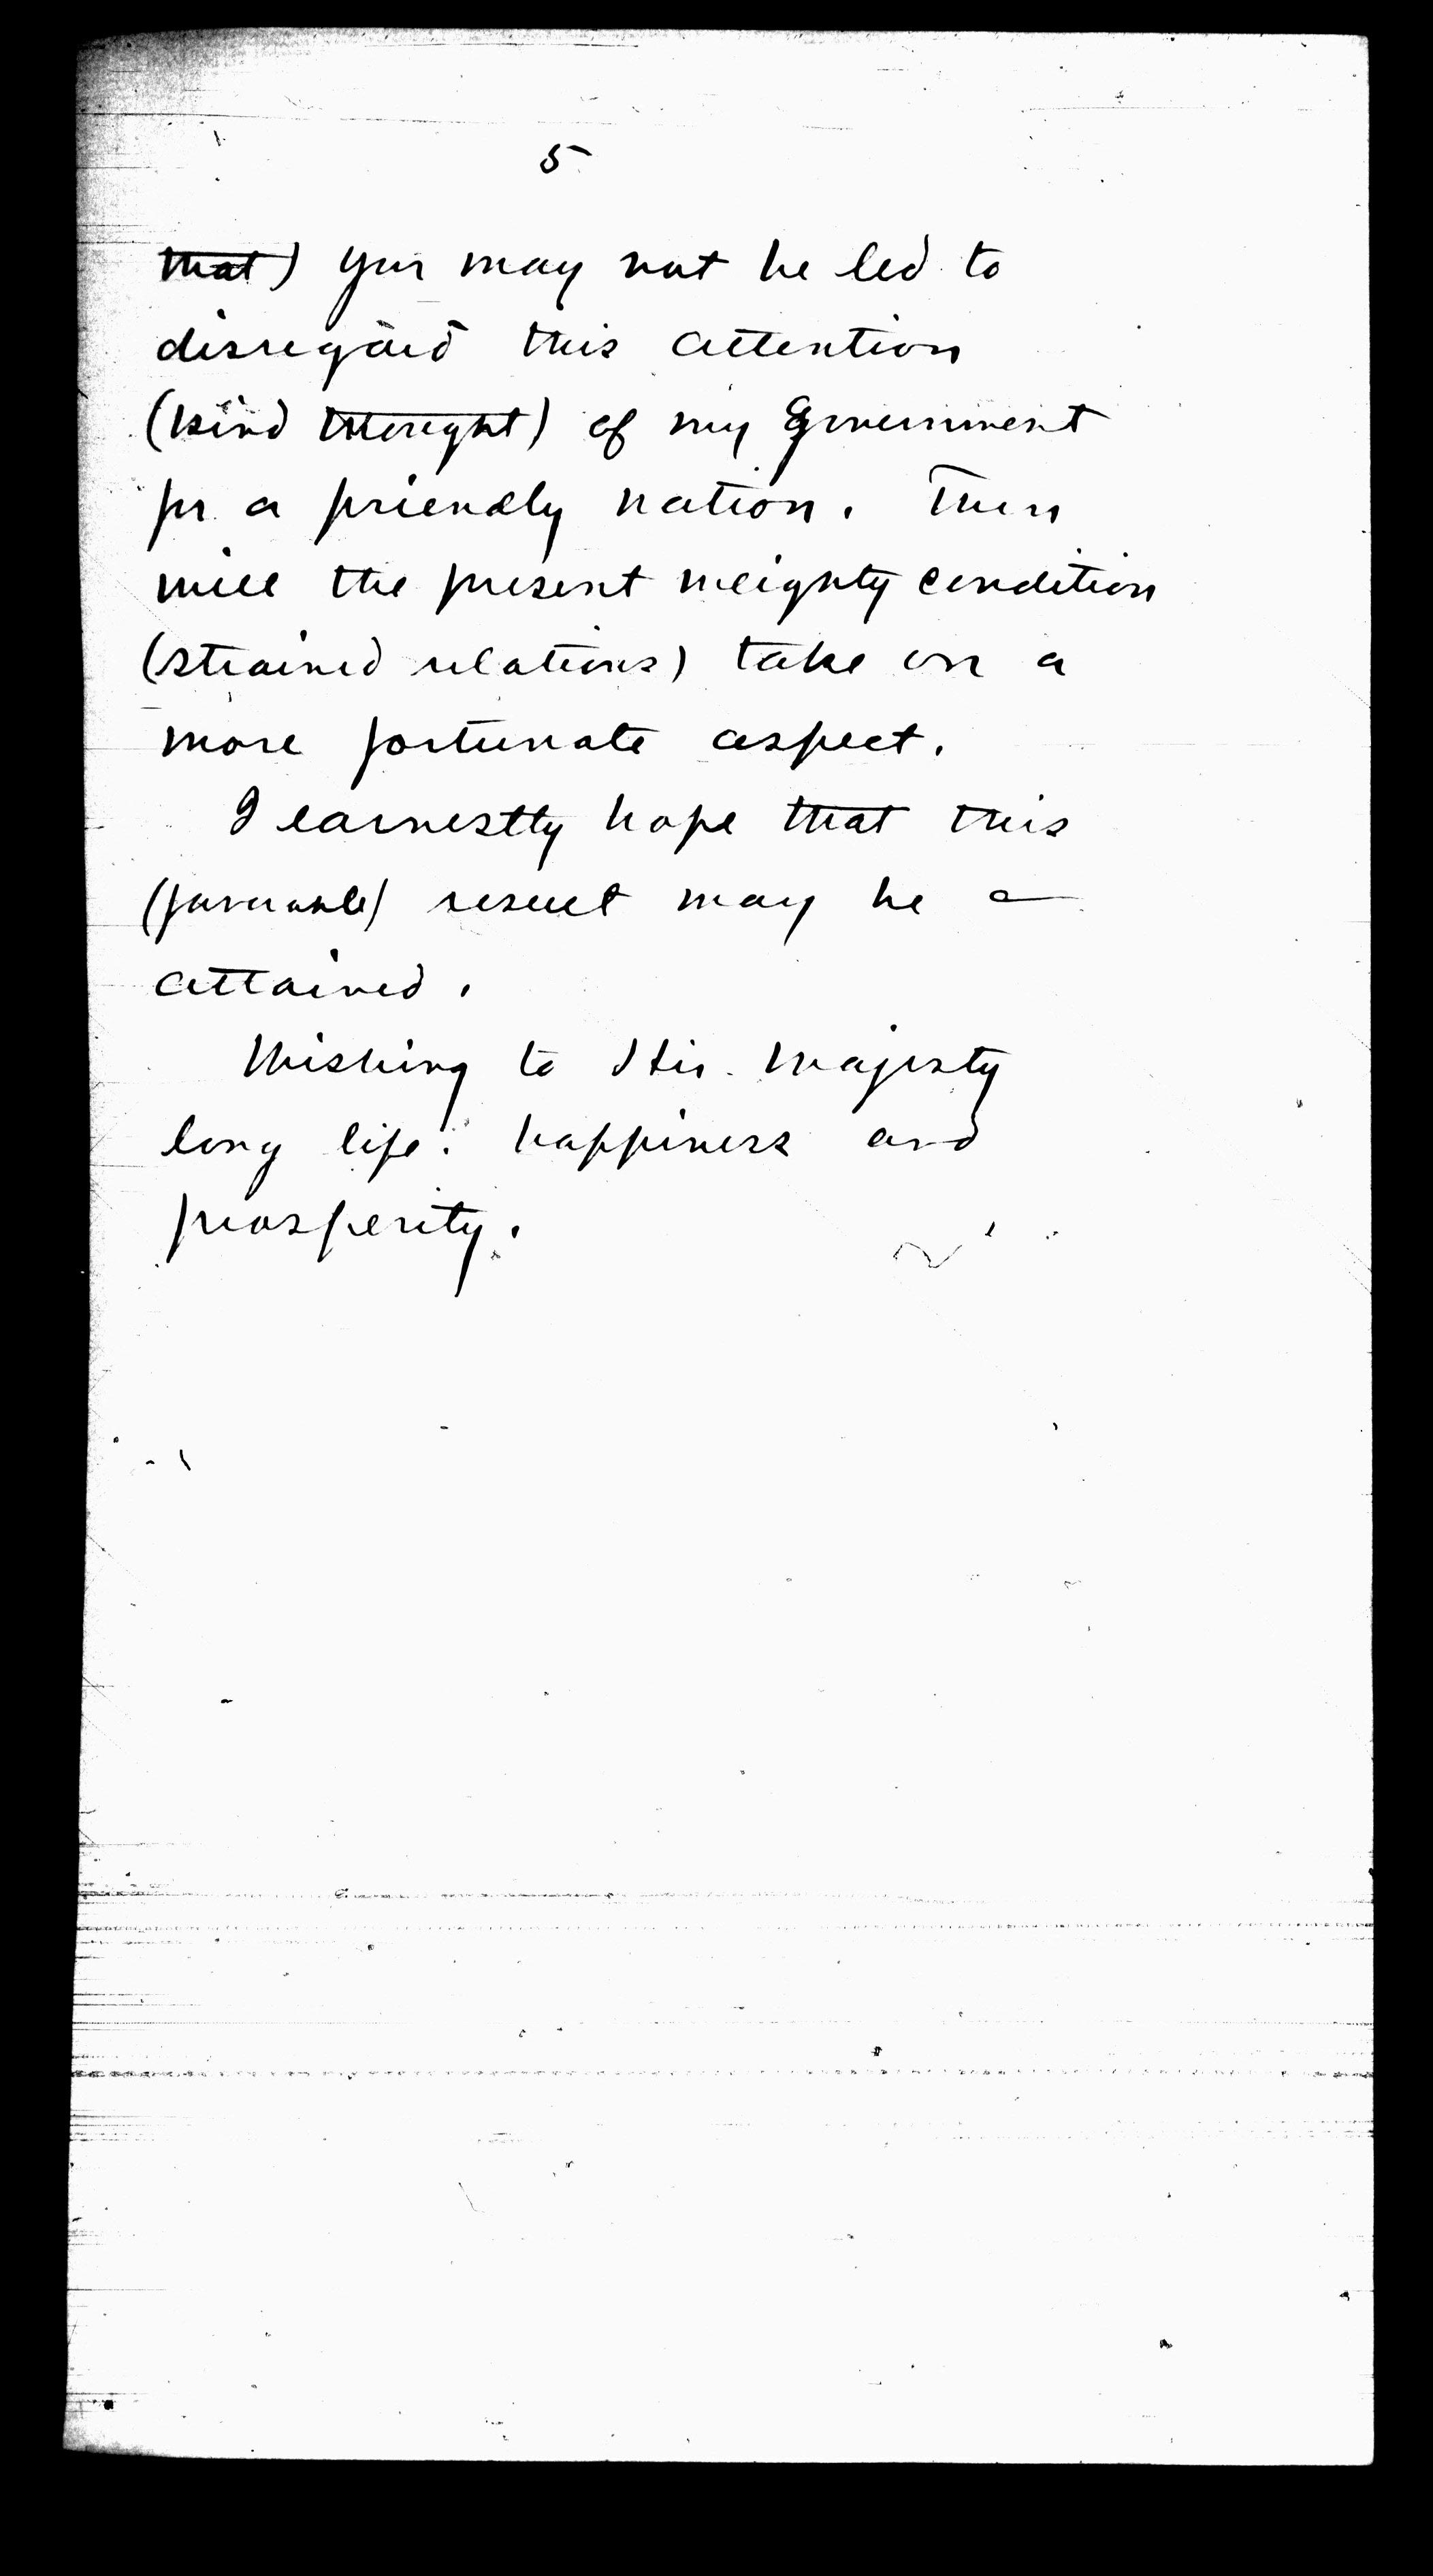 5
that) you may not be led to
disregard this attention
(kind thought) of my Government
for a friendly nation. Then
will the present weighty condition
(strained relations) take on a
more fortunate aspect.
I earnestly hope that this
(favorable) result may be a
attained.
Wishing to His Majesty
long life. happiness and
prosperity.